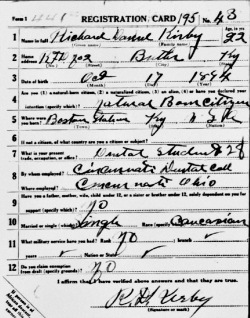 Form 1 REGISTRATION CARD No. 43
1 Name in full Richard Kirby Age, in yrs. 22
(Given name) (Family name)
2 Home address Butler Ky
(No.) (Street) (City) (State)
3 Date of birth Oct 17 1894
(Month) (Day) (Year)
4 Are you (1) a natural-born citizen, (2) a naturalized citizen, (3) an alien, (4) or have you declared your
intention (specify which)? Natural Born Citizen
5 Where were you born? Boston Station Ky U.S.A.
(Town) (State) (Nation)
6 If not a citizen, of what country are you a citizen or subject?
7 What is your present trade, occupation, or office? Dental Student 28
8 By whom employed? Cincinnati Dental Coll
Where employed? Cincinnati Ohio
9 Have you a father, mother, wife, child under 12, or a sister or brother under 12, solely dependent on you for
support (specify which)? No
10 Married or single (which)? Single Race (specify which)? Caucasian
11 What military service have you had? Rank No branch
years Nation or State
12 Do you claim exemption from draft (specify grounds)? No
I affirm that I have verified above answers and that they are true.
Kirby
(Signature or mark)